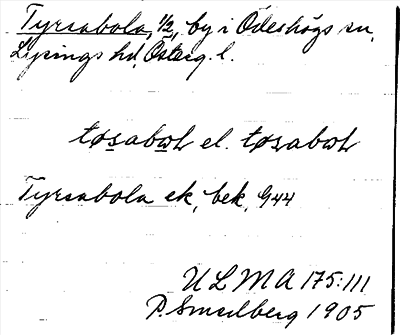 Tyrsabola, 1/2, by i Ödeshögs sn,
Lysings hd, Österg. l.
el.
Tyrsabola ek, bek, 944
ULMA 175:111
P. Smedberg 1905